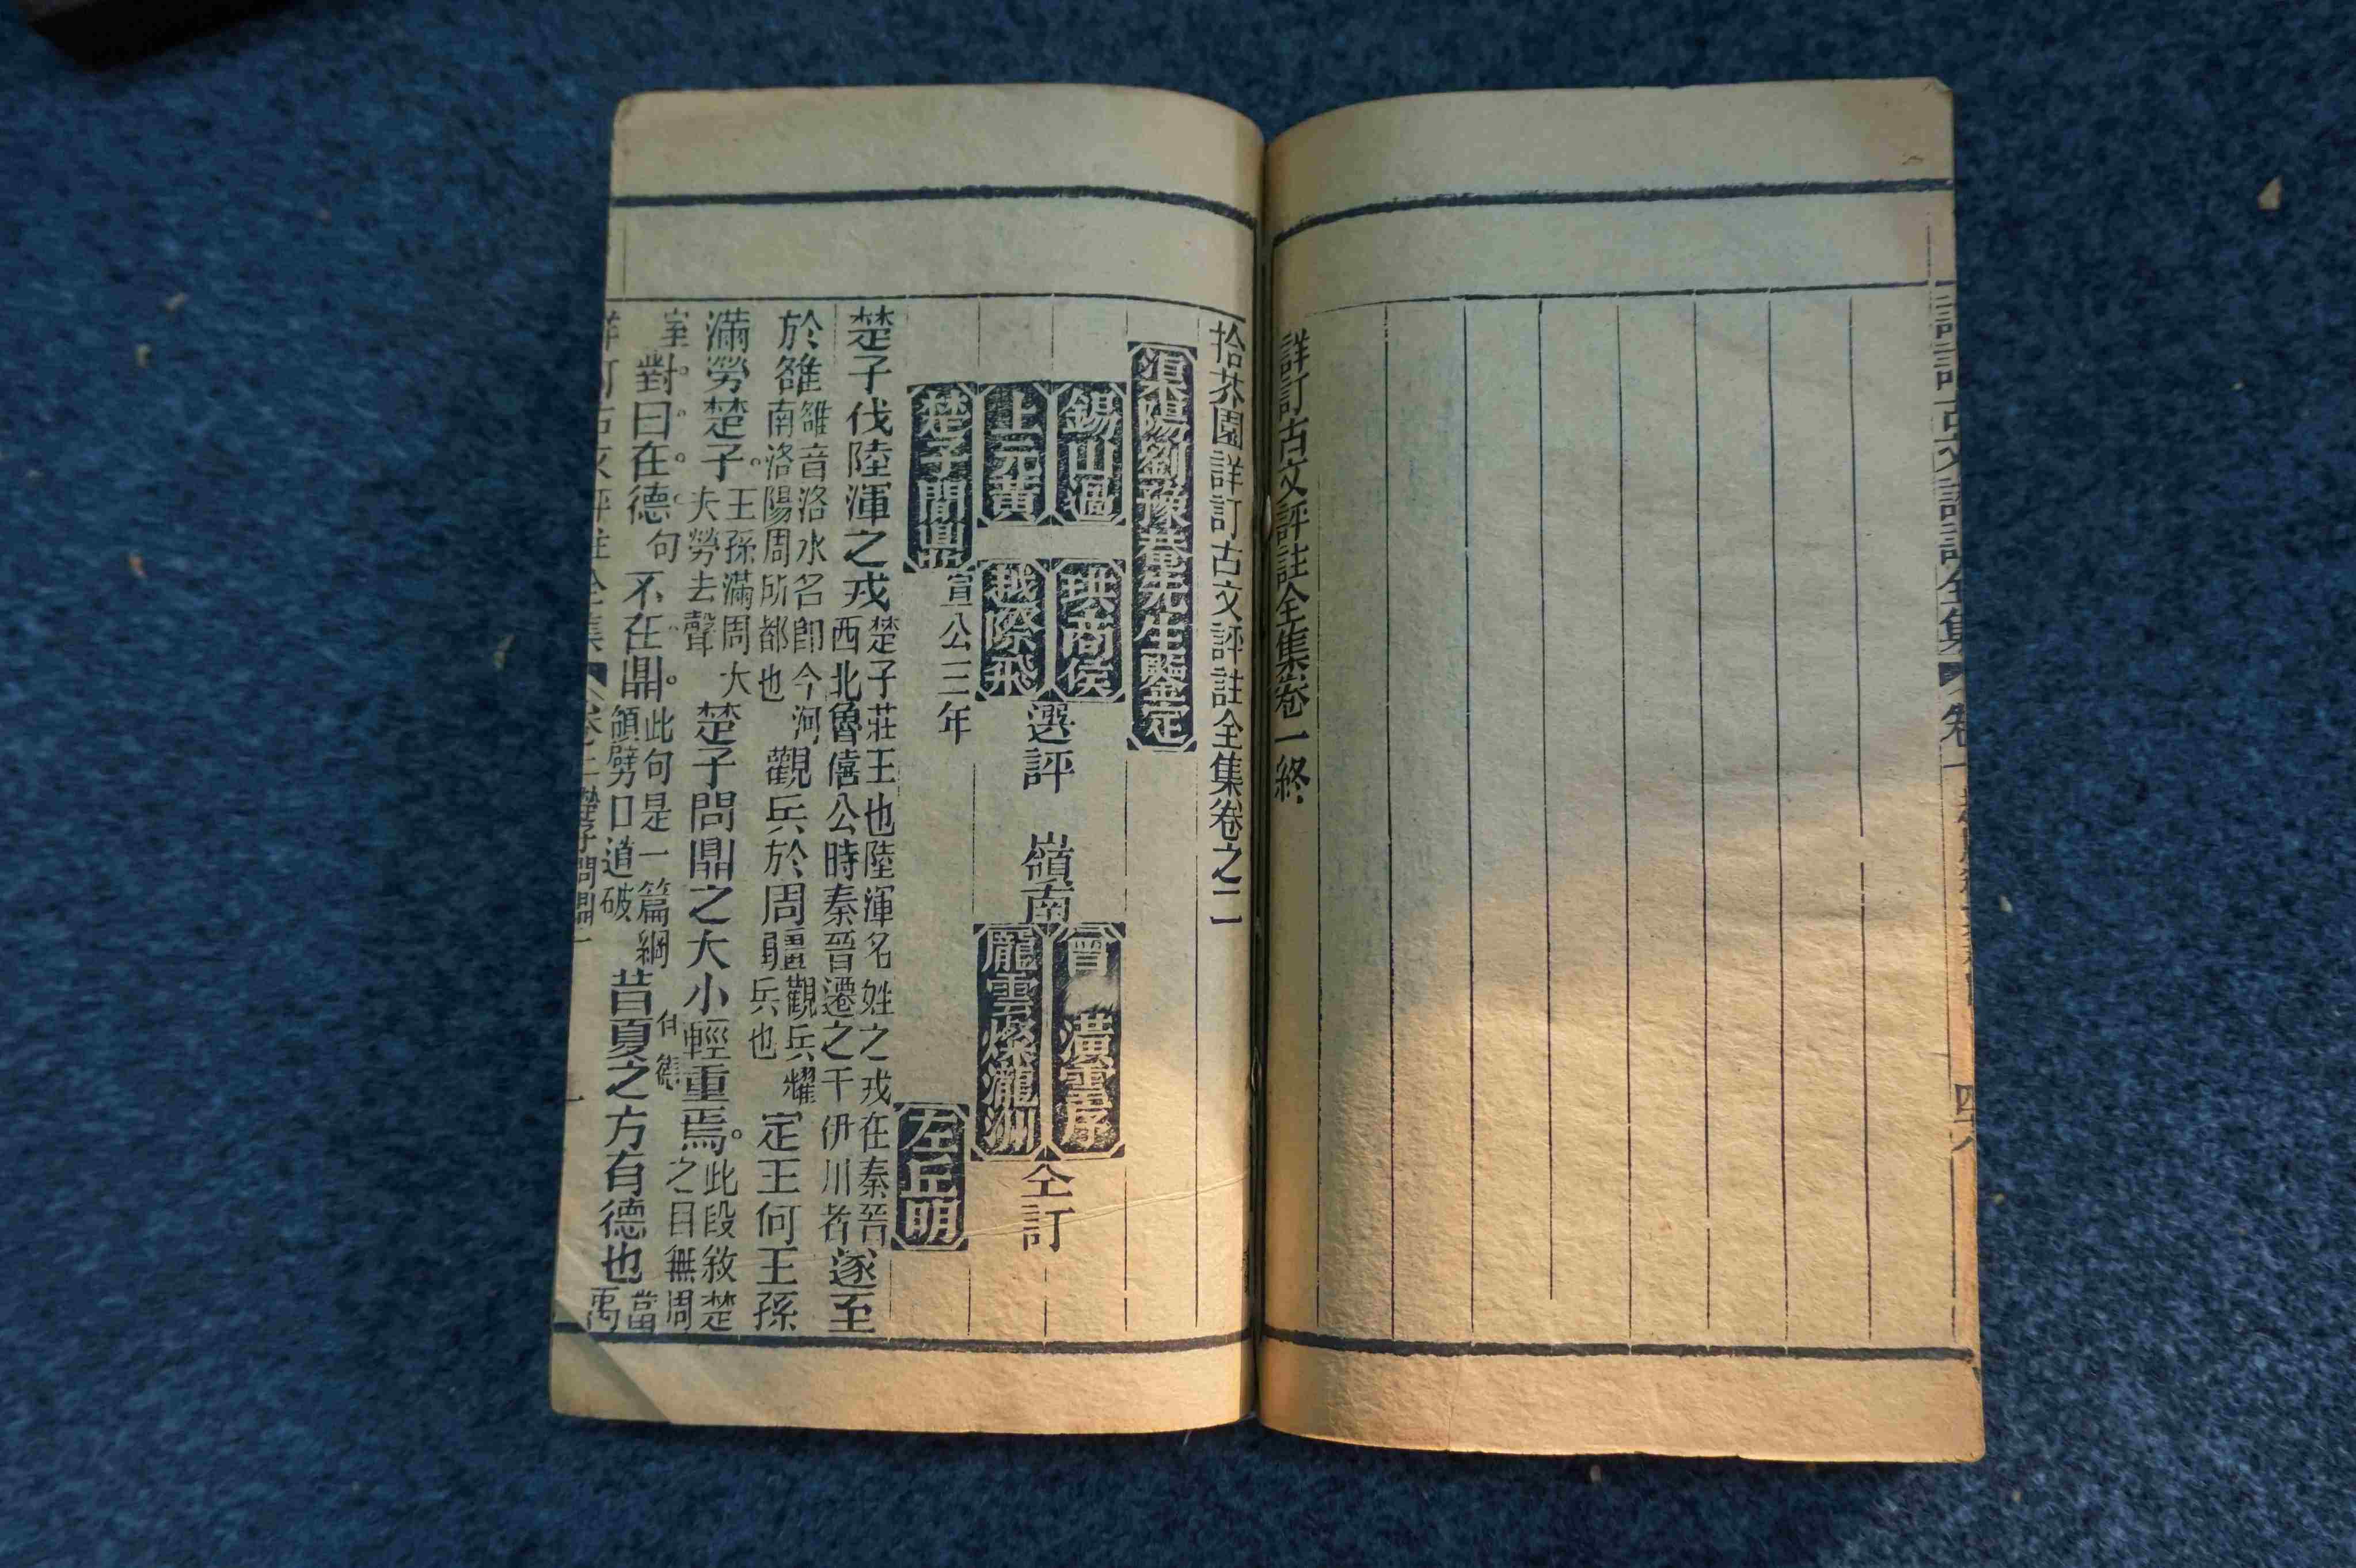 詳訂古文評註全集卷一終
拾芥園詳訂古文評註全集卷之二
渠陽劉豫菴先生鑒定
錫山過 珙商侯
上元黃 越際飛
選評
嶺南
曾 潢雲庠
龐雲燦瀧洲
仝訂
楚子問鼎
宣公三年
左丘明
楚子伐陸渾之戎
楚子莊王也陸渾名姓之戎在秦晉
西北魯僖公時秦晉遷之于伊川者
遂至
於雒
雒音洛水名即今河
南洛陽周所都也
觀兵於周疆
觀兵耀
兵也
定王何王孫
滿勞楚子。
王孫滿周大
夫勞去聲
楚子問鼎之大小輕重焉。
此段敘楚
之目無周
室。
對曰在德
句
不在鼎。
此句是一篇綱
領劈口道破
昔夏之方有德也
當
禹
詳訂古文評註全集
卷二
楚子問鼎
一
全集
卷一
四八